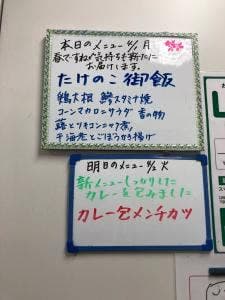 本日のメニュー 4/1 月
春ですね♪気持ちも新たに
お届けします。
たけのこ御飯
鶏大根 鰺スタミナ焼
コーンマカロニサラダ 香の物
蕗とツキコンニャク煮
干海老とごぼうかき揚げ
明日のメニュー 4/2 火
新メニューしっかりした
カレーを包みました
カレー包メンチカツ